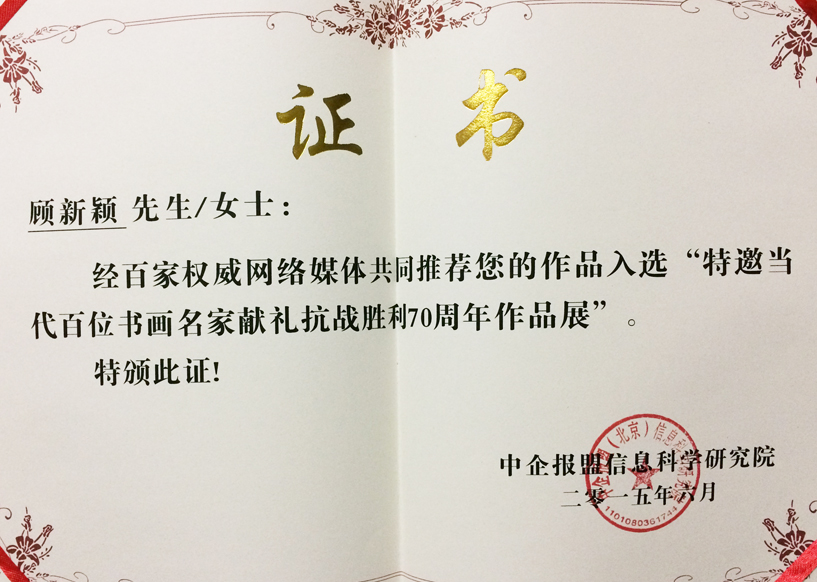 证 书
顾新颖 先生/女士：
经百家权威网络媒体共同推荐您的作品入选“特邀当
代百位书画名家献礼抗战胜利70周年作品展”。
特颁此证!
中企报盟信息科学研究院
二零一五年六月
中企报盟（北京）信息科学研究院
1101080361744